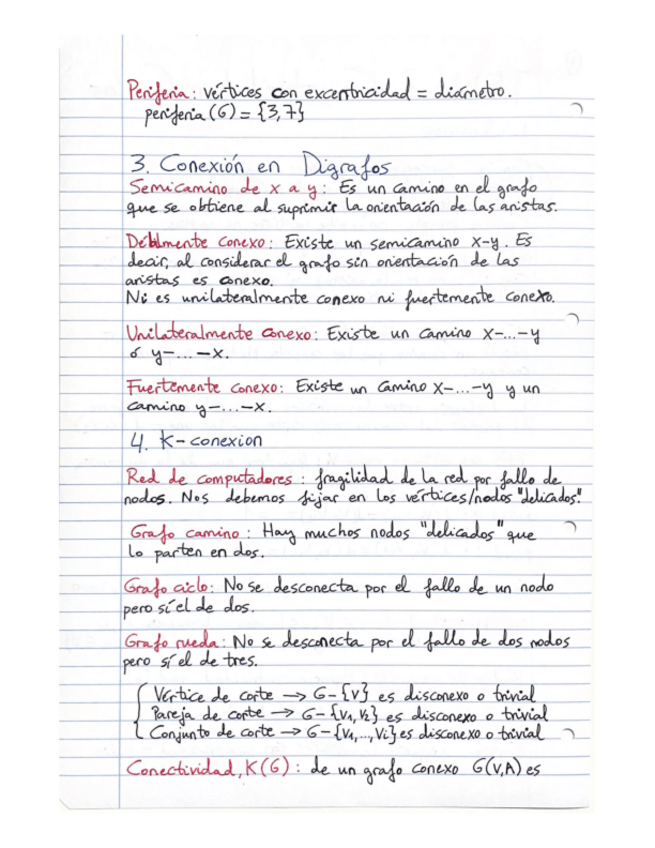 Periferia: vértices con excentricidad = diámetro.
periferia (G) = {3,7}
3. Conexión en Digrafos
Semicamino de x a y: Es un camino en el grafo
que se obtiene al suprimir la orientación de las aristas.
Débilmente conexo: Existe un semicamino x-y. Es
decir, al considerar el grafo sin orientación de las
aristas es conexo.
Ni es unilateralmente conexo ni fuertemente conexo.
Unilateralmente conexo: Existe un camino x-...-y
ó y-...-x.
Fuertemente conexo: Existe un camino x-...-y y un
camino y-...-x.
4. K-conexion
Red de computadores: fragilidad de la red por fallo de
nodos. Nos debemos fijar en los vértices/nodos "delicados".
Grafo camino: Hay muchos nodos "delicados" que
lo parten en dos.
Grafo ciclo: No se desconecta por el fallo de un nodo
pero sí el de dos.
Grafo rueda: No se desconecta por el fallo de dos nodos
pero sí el de tres.
Vértice de corte → G-{v} es disconexo o trivial
Pareja de corte → G-{v₁, v₂} es disconexo o trivial
Conjunto de corte → G-{v₁,...,vi} es disconexo o trivial
Conectividad, K(G): de un grafo conexo G(V,A) es